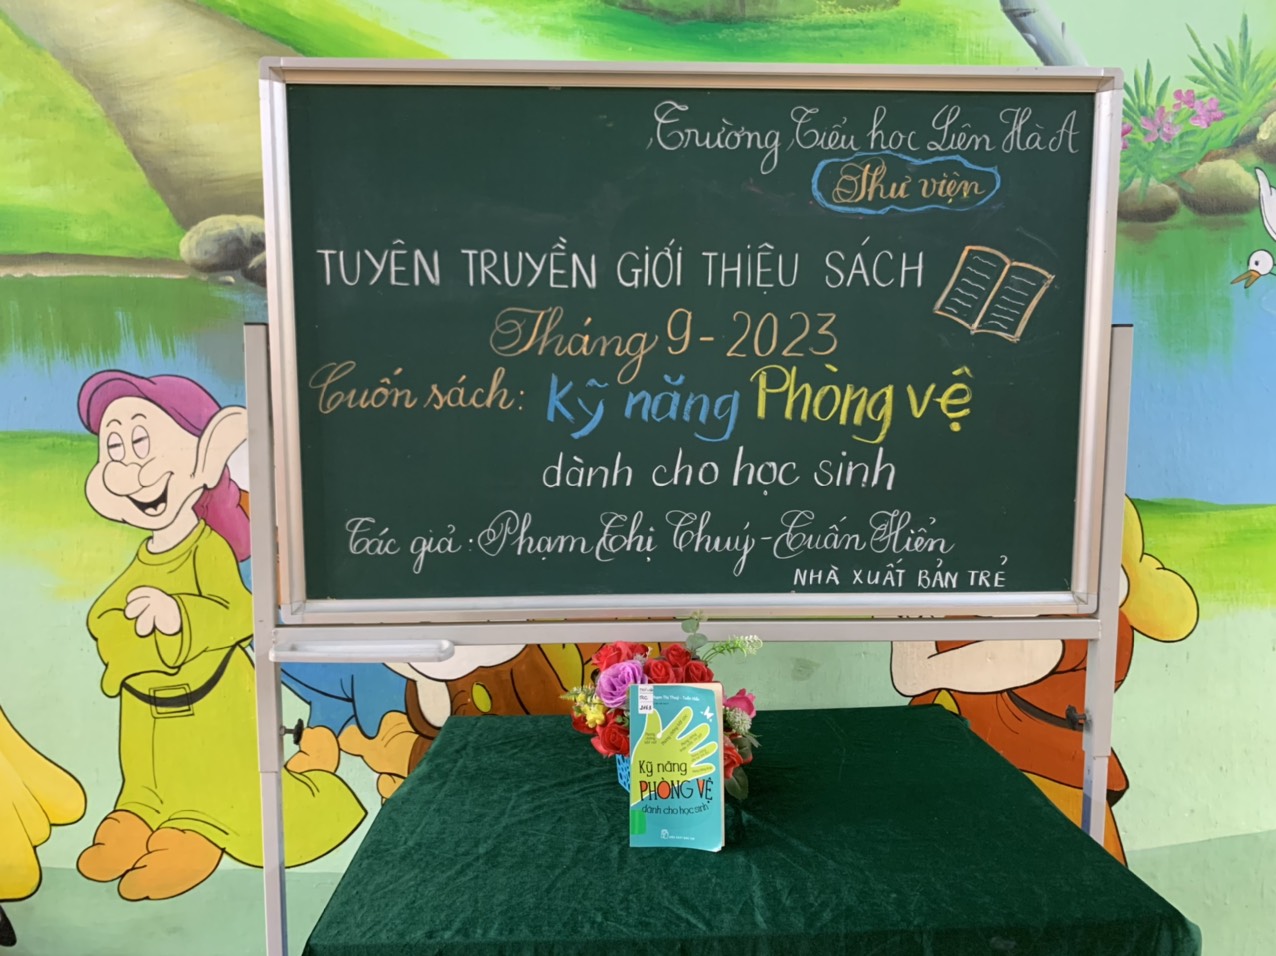 Trường Tiểu học Liên Hà A
Thư viện
TUYÊN TRUYỀN GIỚI THIỆU SÁCH
Tháng 9 - 2023
Cuốn sách: Kỹ năng Phòng vệ
dành cho học sinh
Tác giả: Phạm Thị Thuý - Tuấn Hiển
NHÀ XUẤT BẢN TRẺ
Phạm Thị Thuý - Tuấn Hiển
Kỹ năng
PHÒNG VỆ
dành cho học sinh